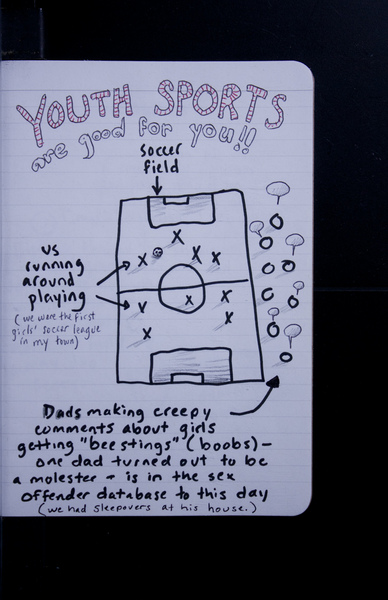 YOUTH SPORTS
are good for you!!
soccer
field
us
running
around
playing
(we were the first
girls' soccer league
in my town)
X
X
X
X
X
X
X
X
X
Dads making creepy
comments about girls
getting "bee stings" (boobs) -
one dad turned out to be
a molester + is in the sex
offender database to this day
(we had sleepovers at his house.)